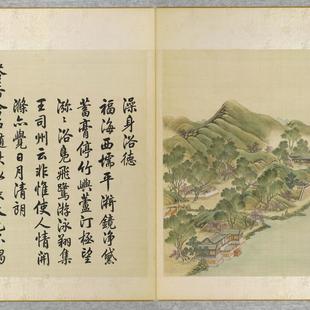 澡身浴德
福海西壖平漸鏡淨黛
蓄膏停竹嶼蘆汀極望
瀰〻浴鳧飛鷺游泳翔集
王司州云非惟使人情開
滌亦覺日月清朗